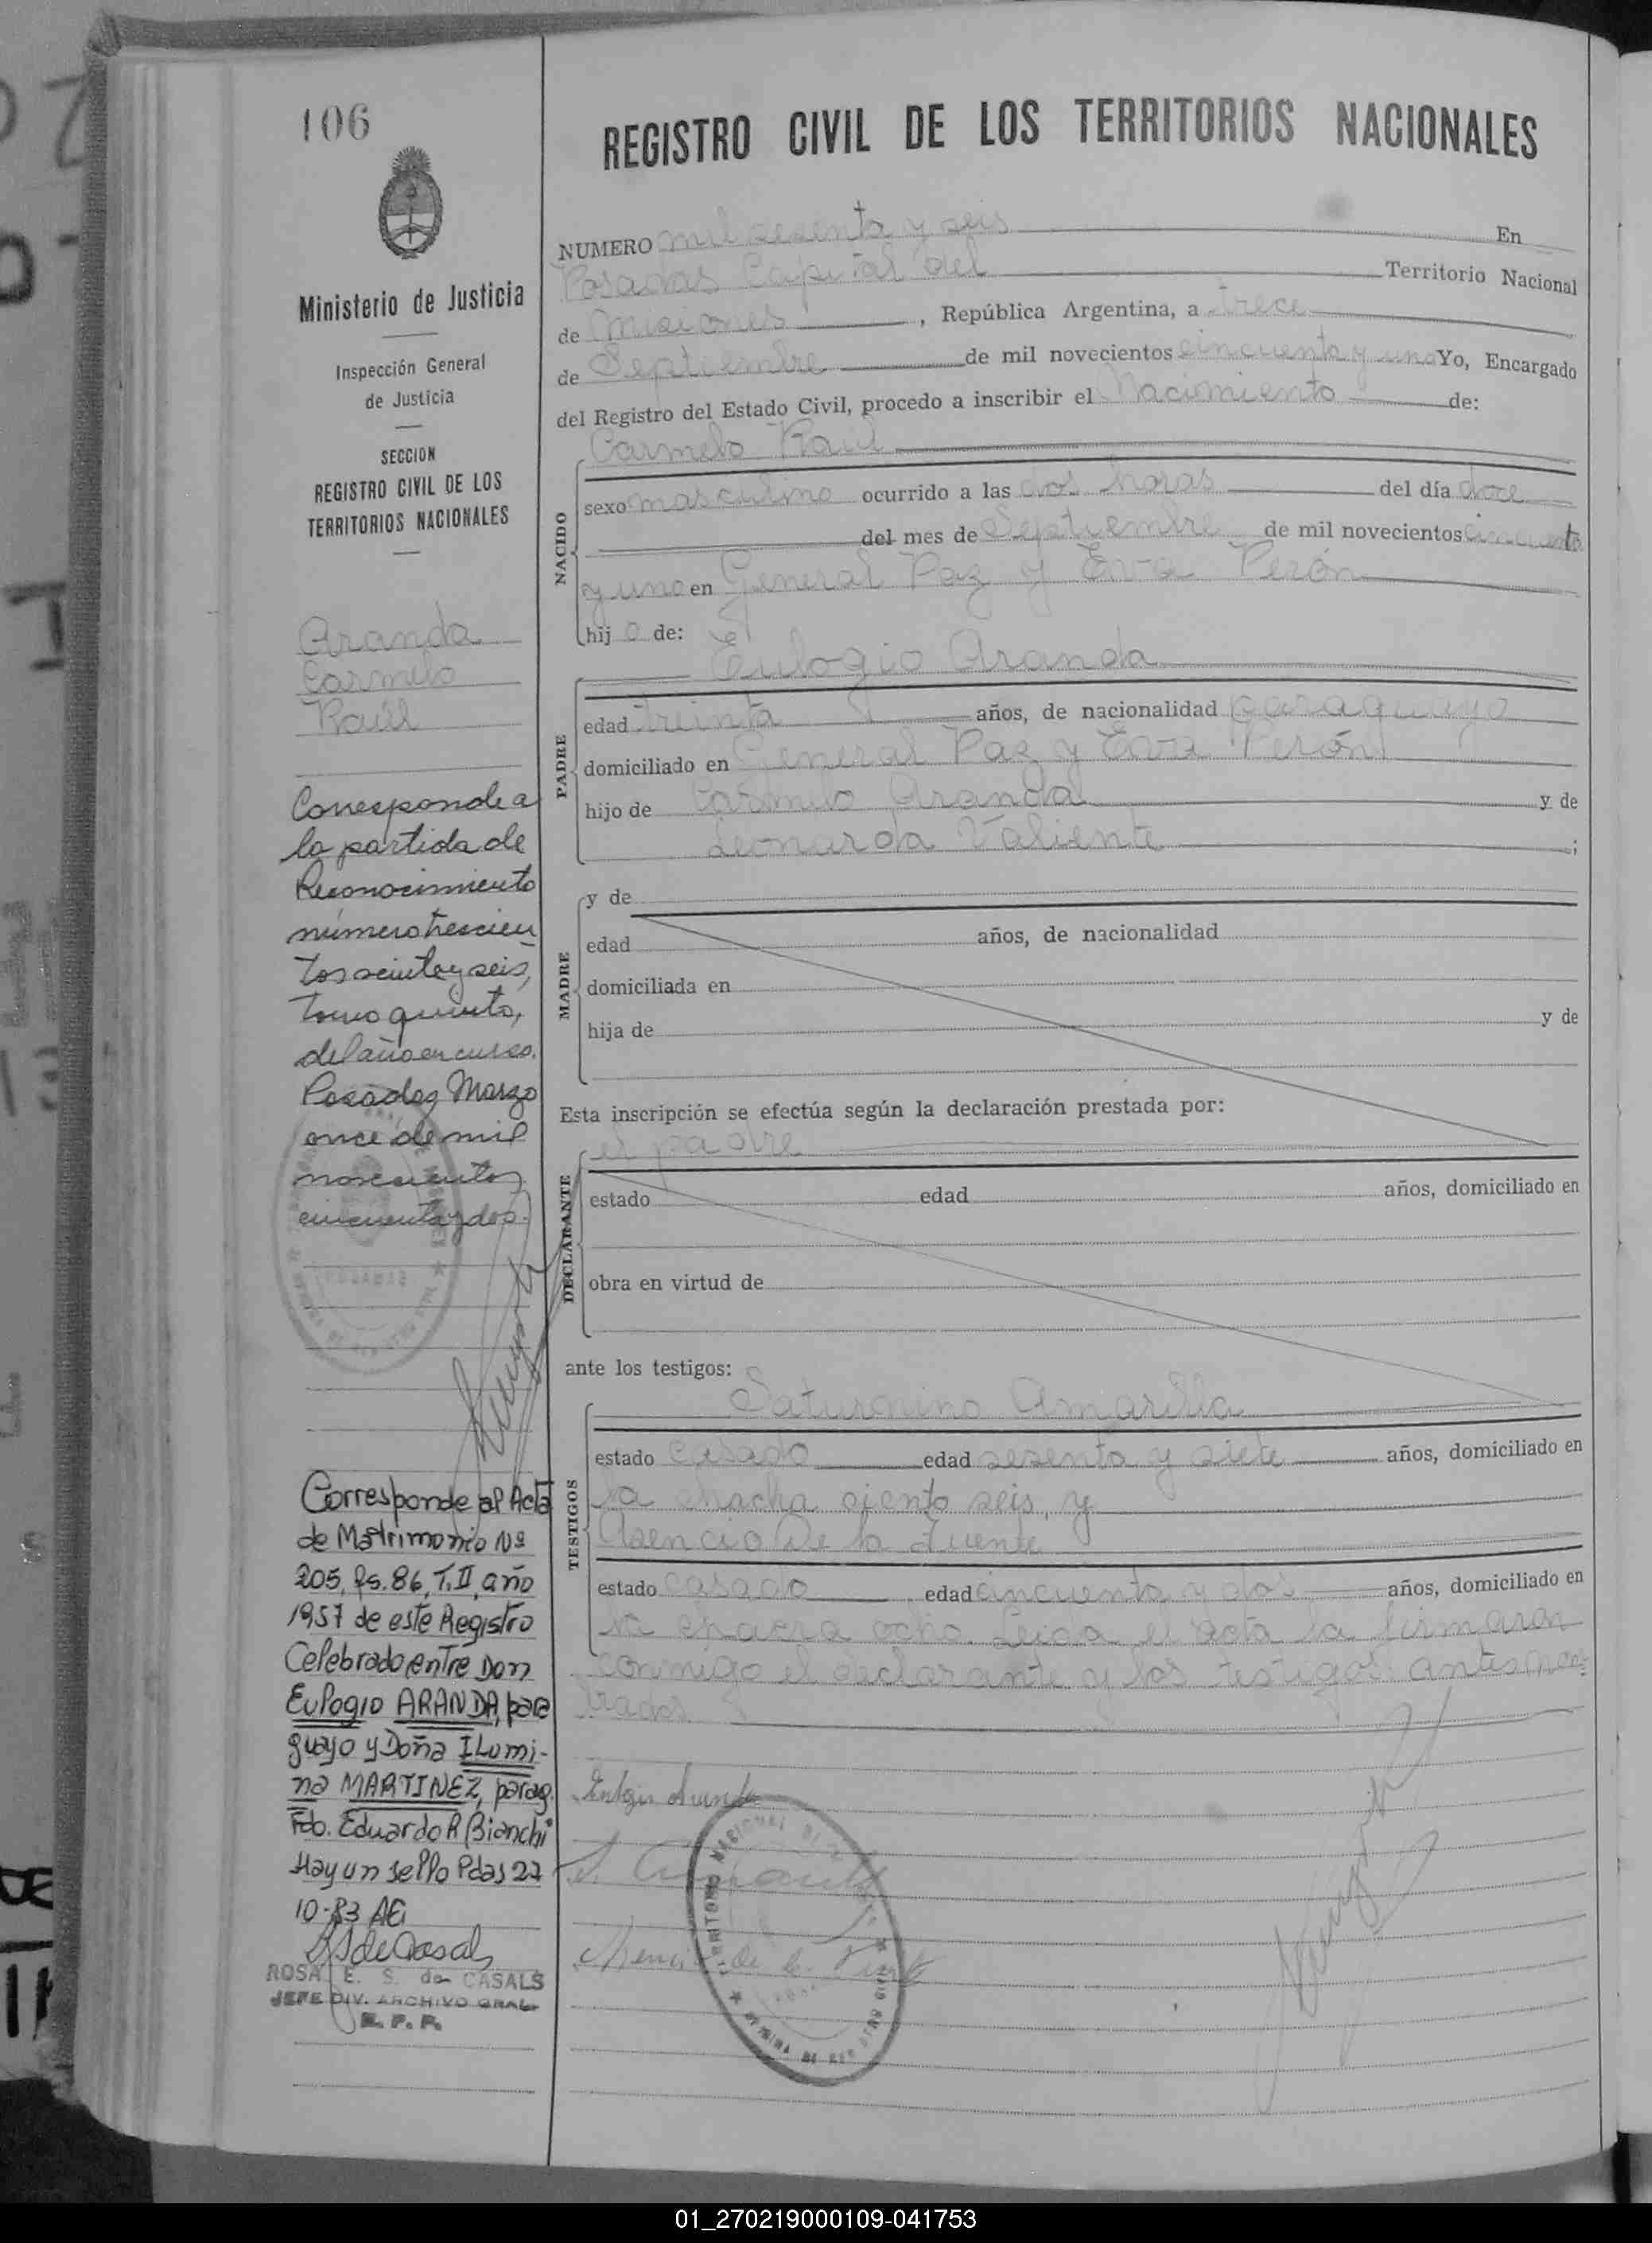 106
Ministerio de Justicia
Inspección General
de Justicia
SECCION
REGISTRO CIVIL DE LOS
TERRITORIOS NACIONALES
Aranda
Carmelo
Raúl
Corresponde a
la partida de
Reconocimiento
número trescien
tos veinte y seis,
Tomo quinto,
del año en curso.
Posadas, Marzo
once de mil
novecientos
cincuenta y dos.
Corresponde al Acta
de Matrimonio Nº
205, Fs. 86, T. II, año
1957 de este Registro
Celebrado entre Don
Eulogio ARANDA, para
guayo y Doña ILumi-
na MARTINEZ, parag.
Fdo. Eduardo R Bianchi
Hay un sello Pdas 27
10-83 AG
ROSA E. S. de CASALS
JEFE DIV. ARCHIVO GRAL.
R. P. P.
REGISTRO CIVIL DE LOS TERRITORIOS NACIONALES
NUMERO mil sesenta y seis En
Posadas Capital del Territorio Nacional
de Misiones, República Argentina, a trece
de Septiembre de mil novecientos cincuenta y uno Yo, Encargado
del Registro del Estado Civil, procedo a inscribir el Nacimiento de:
Carmelo Raúl
NACIDO
sexo masculino ocurrido a las dos horas del día doce
del mes de Septiembre de mil novecientos cincuenta
y uno en General Paz y Eva Perón
hij o de:
Eulogio Aranda
PADRE
edad treinta años, de nacionalidad paraguayo
domiciliado en General Paz y Eva Perón
hijo de Carmelo Aranda y de
Leonarda Valiente ;
MADRE
y de
edad años, de nacionalidad
domiciliada en
hija de y de
Esta inscripción se efectúa según la declaración prestada por:
el padre
DECLARANTE
estado edad años, domiciliado en
obra en virtud de
ante los testigos:
Saturnino Amarilla
TESTIGOS
estado casado edad sesenta y siete años, domiciliado en
la chacra ciento seis, y
Asencio De la Fuente
estado casado edad cincuenta y dos años, domiciliado en
la chacra ocho. Leida el acta la firmaron
conmigo el declarante y los testigos antes nom-
brados
Eulogio Aranda
Asencio de la Fuente
01_270219000109-041753